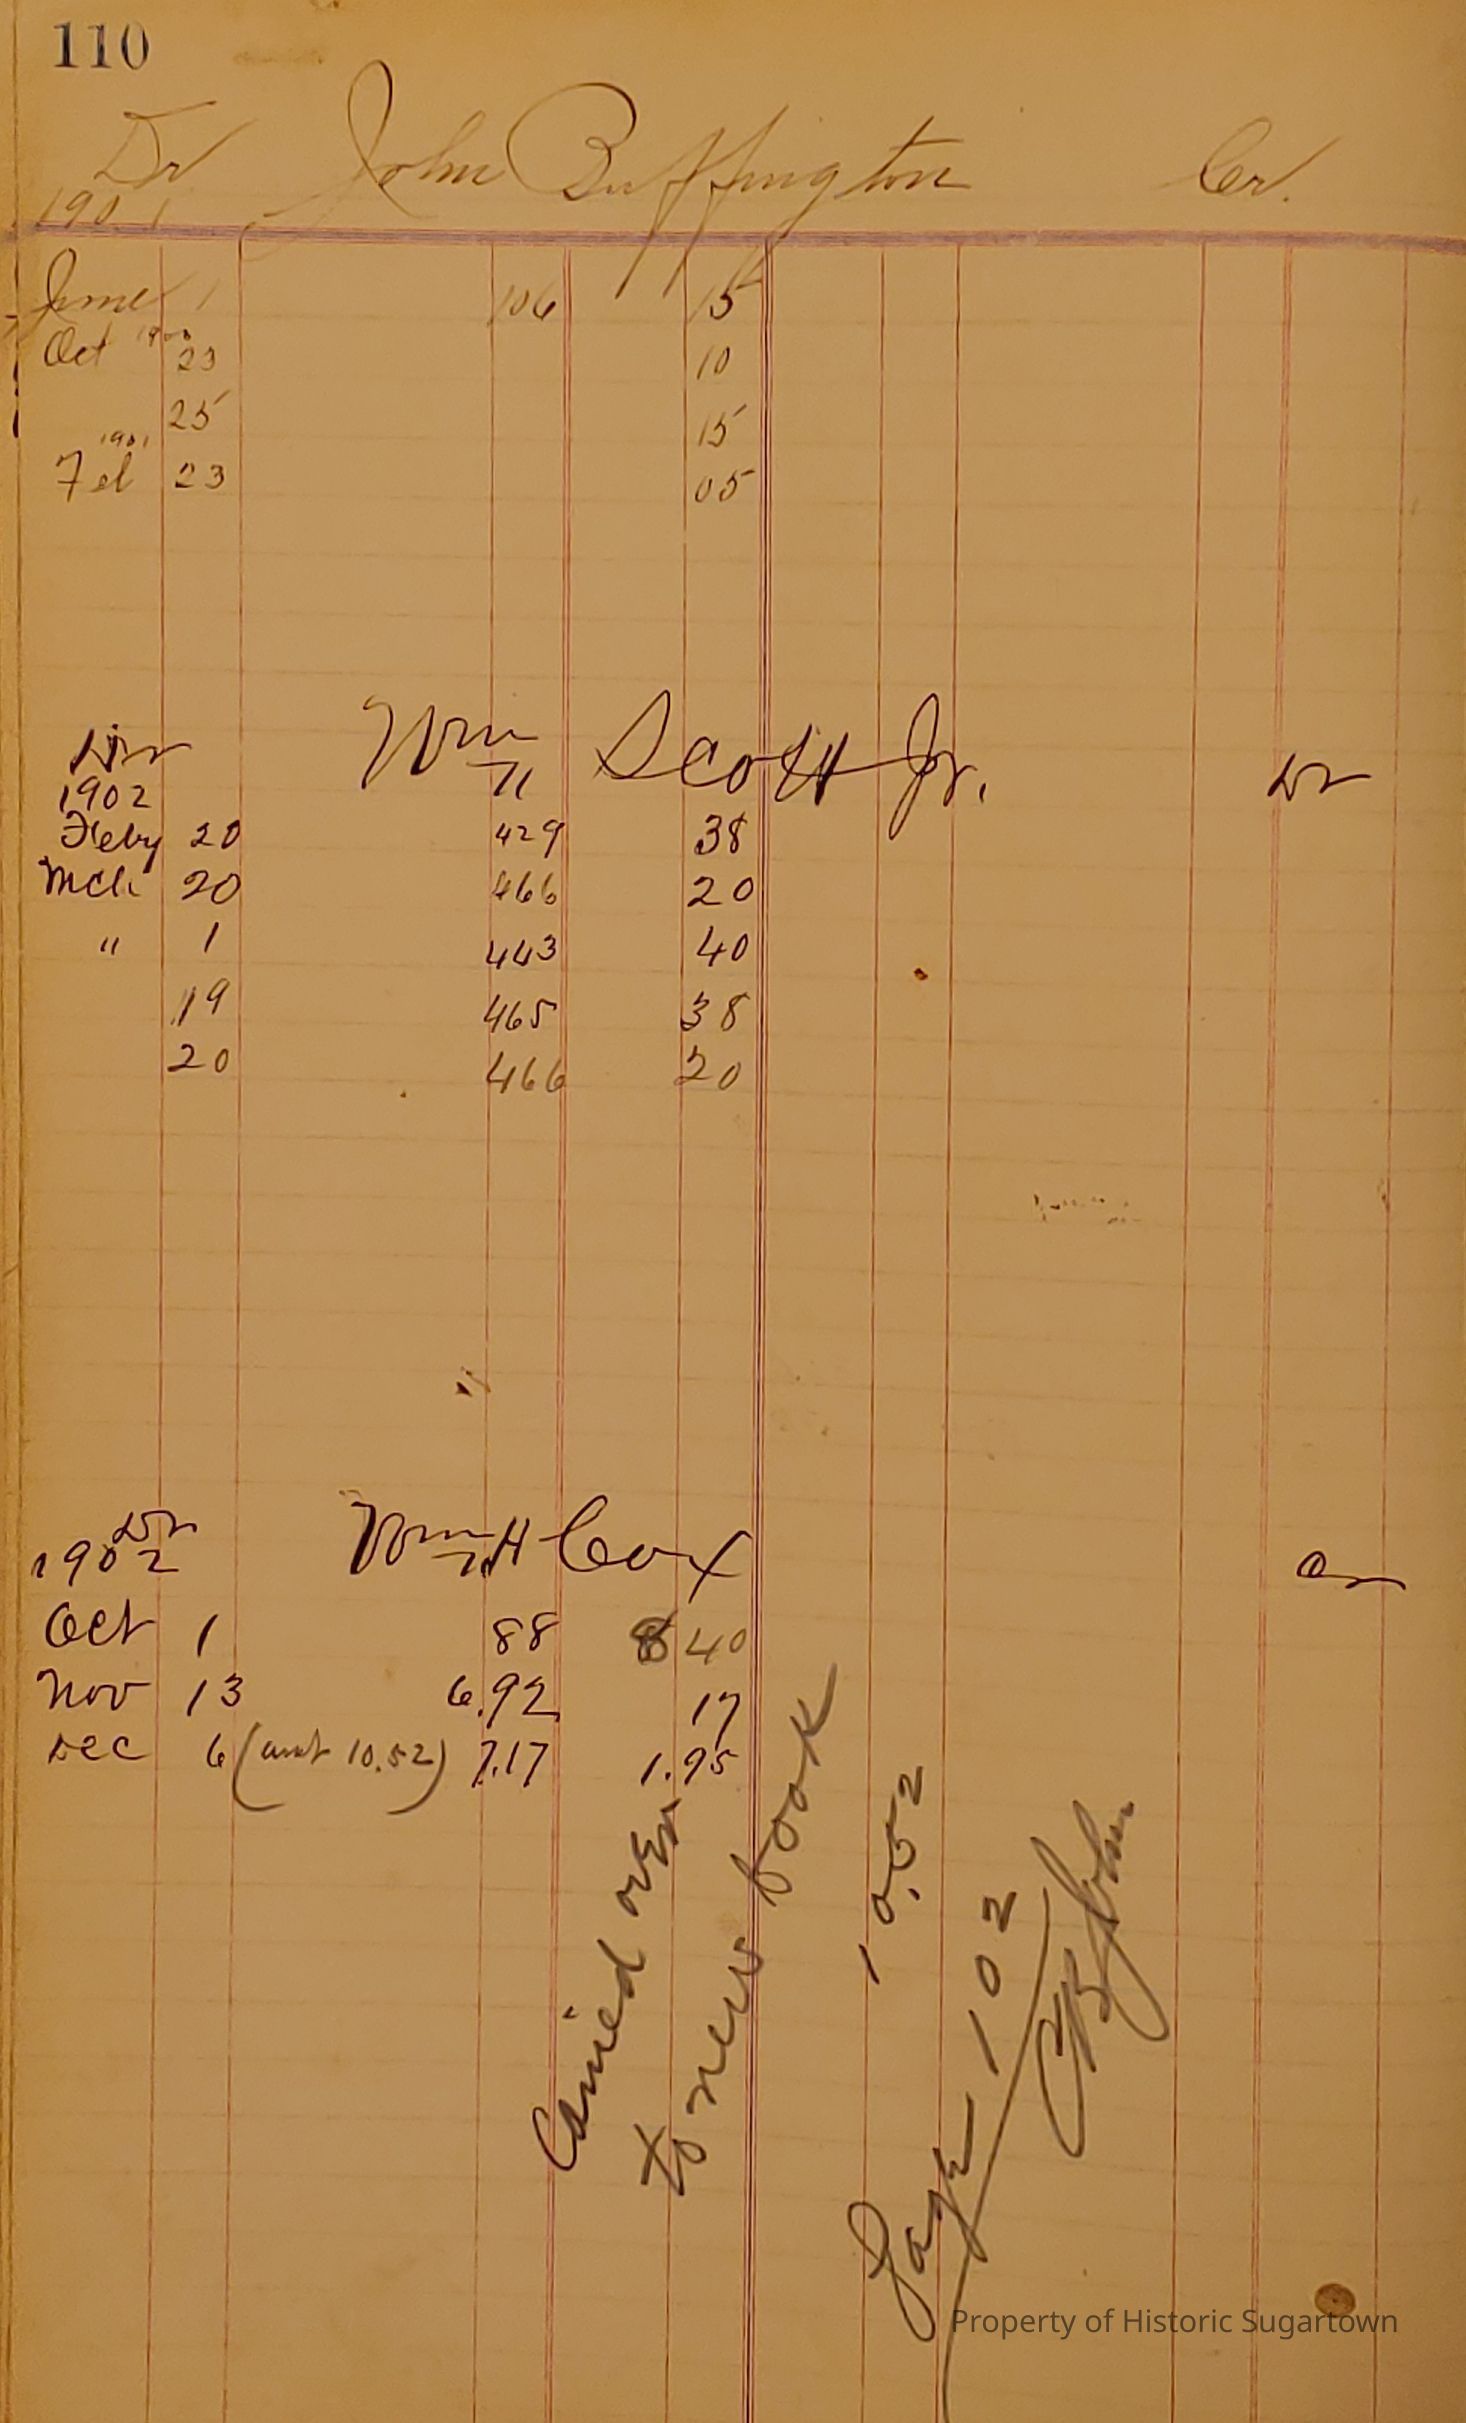 110
Dr John Buffington Cr.
1901
June 1 106 15
Oct 1900 23 10
25 15
1901
Feb 23 05
Dr Wm Scott Jr. Dr
1902
Feby 20 429 38
Mch 20 466 20
" 1 443 40
19 465 38
20 466 20
Dr Wm H Cox Cr
1902
Oct 1 88 40
Nov 13 6.92 17
Dec 6 (amt 10.52) 7.17 1.95
Carried over
to new book
10.52
Page 102
Property of Historic Sugartown